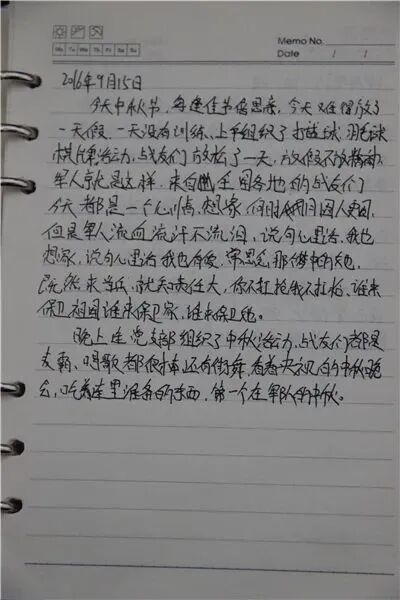 Memo No.
Mo Tu We Th Fr Sa Su
Date / /
2016年9月15日
今天中秋节，每逢佳节倍思亲，今天难得放了
一天假，一天没有训练、上午组织了打篮球、羽毛球
棋牌活动，战友们放松了一天，放假不放精神，
军人就是这样，来自全国各地的战友们
今天都是一个心情，想家，何时月圆因人更圆，
但是军人流血流汗不流泪，说句心里话，我也
想家，说句心里话我也有爱，常思念那梦中的她，
既然来当兵，就知责任大，你不扛枪我不扛枪、谁来
保卫祖国谁来保卫家，谁来保卫她。
晚上连党支部组织了中秋活动，战友们都是
麦霸、唱歌都很棒还有街舞，看着央视的中秋晚
会，吃着连里准备的东西，第一个在军队的中秋。